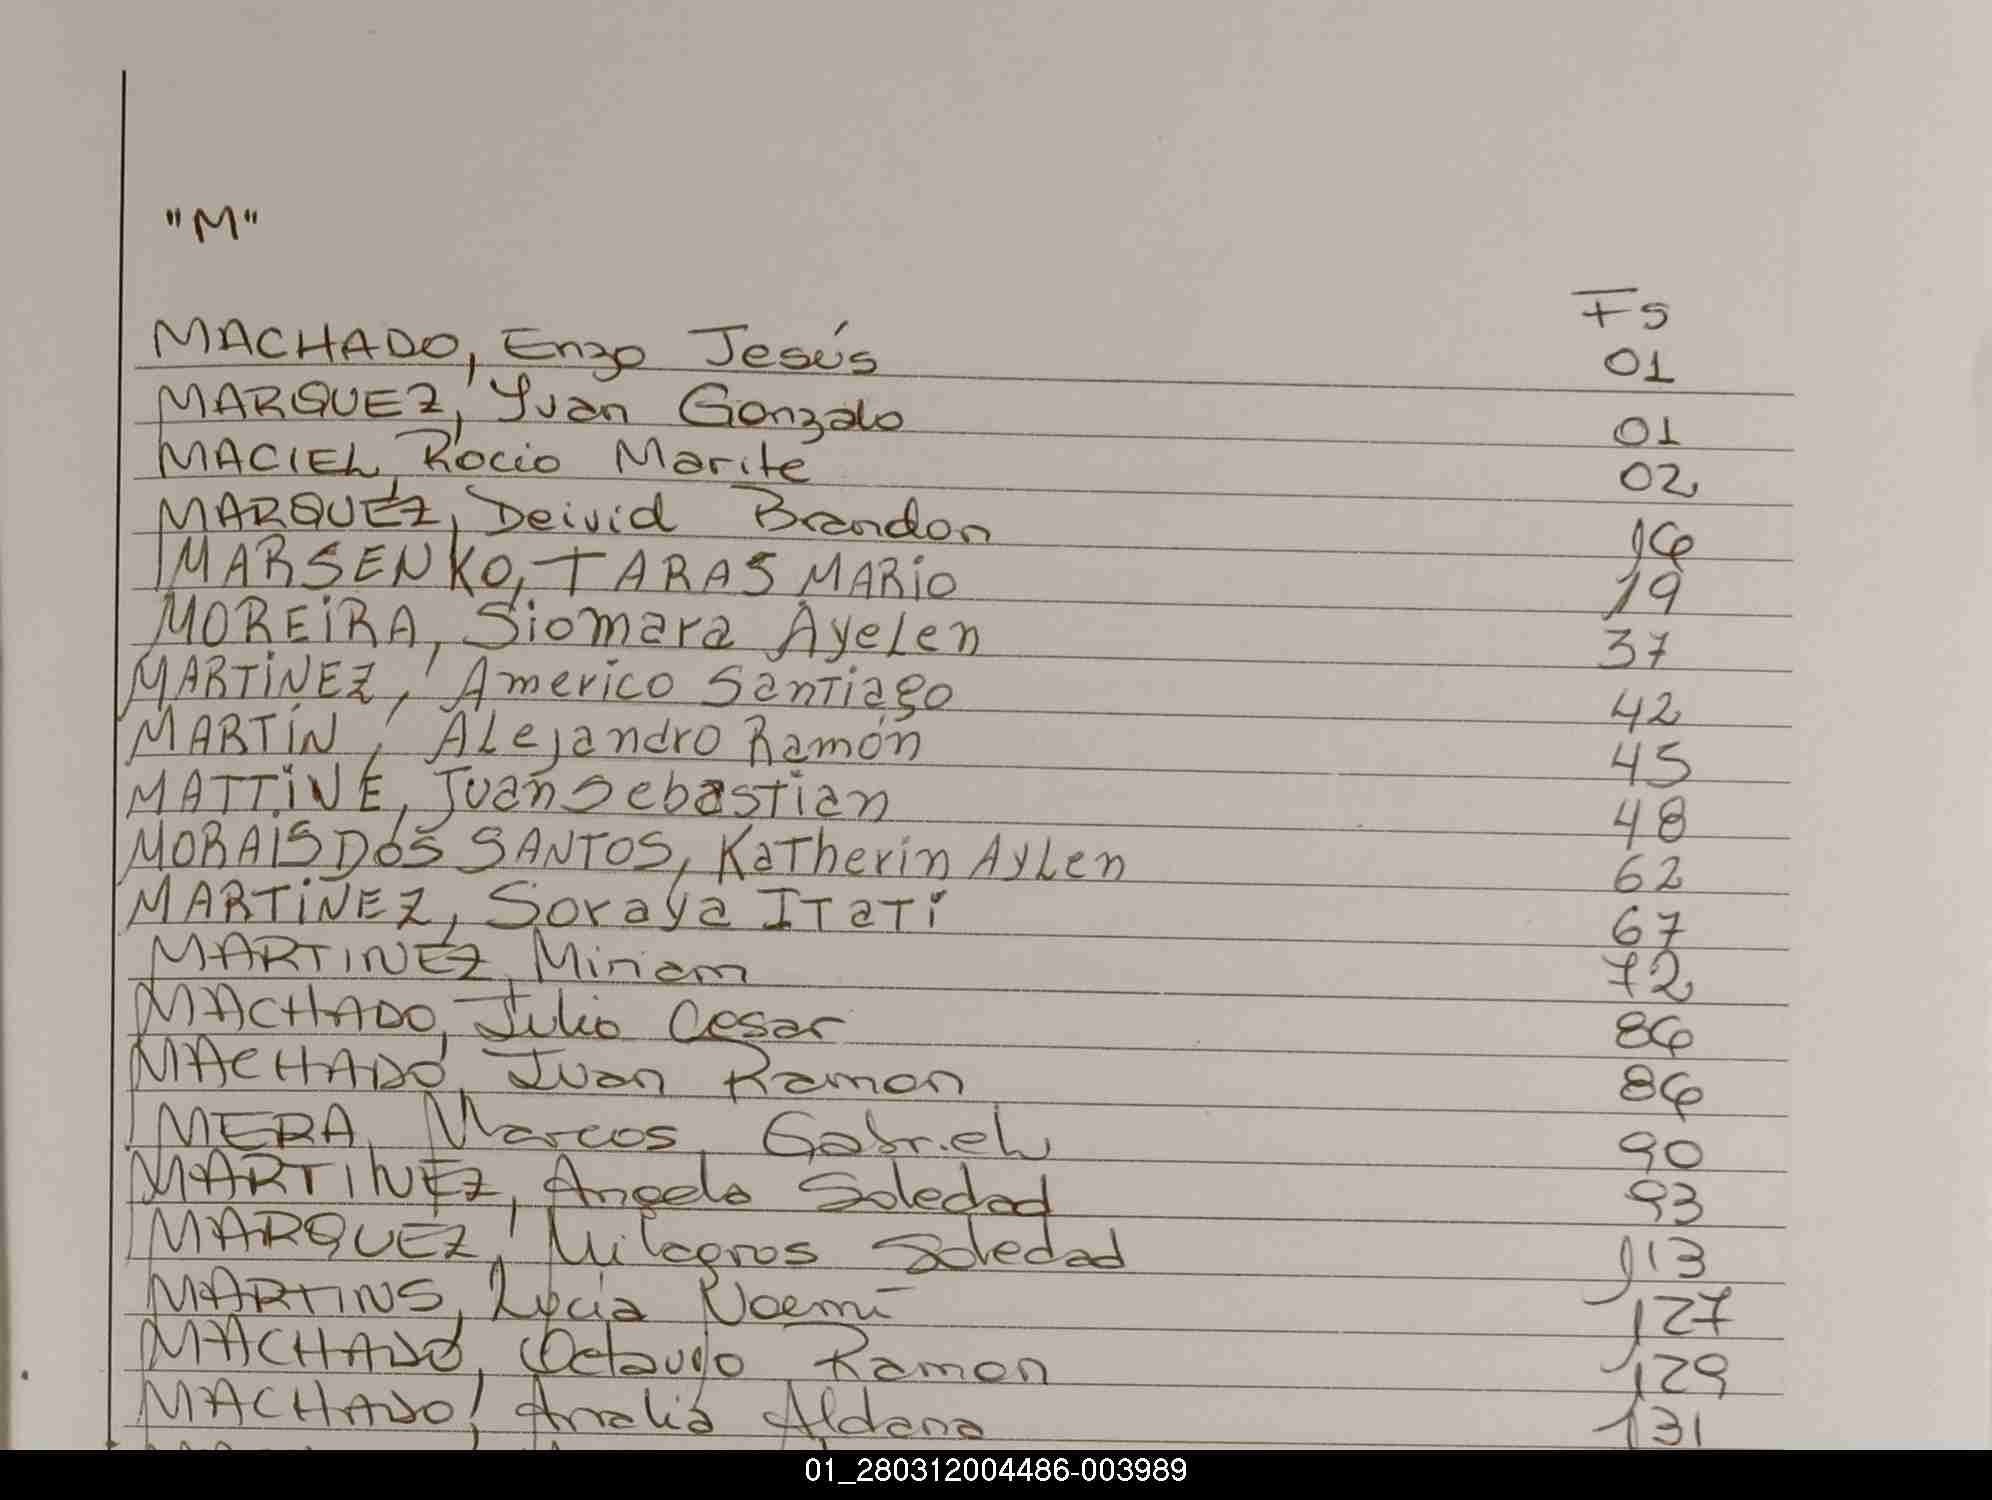 "M"
Fs
MACHADO, Enzo Jesús 01
MARQUEZ, Yvan Gonzalo 01
MACIEL, Rocio Marite 02
MARQUEZ, Deivid Brandon 16
MARSENKO, TARAS MARiO 19
MOREiRA, Siomara Ayelen 37
MARTiNEZ, Americo Santiago 42
MARTÍN, Alejandro Ramón 45
MATTiNE, Juan Sebastian 48
MORAiS DOS SANTOS, Katherin Aylen 62
MARTiNEZ, Soraya Itati 67
MARTINEZ, Miriam 72
MACHADO, Julio Cesar 86
MACHADO, Juan Ramon 86
MERA, Marcos Gabriel 90
MARTINEZ, Angela Soledad 93
MARQUEZ, Milagros Soledad 113
MARTINS, Lucia Noemí 127
MACHADO, Octavio Ramon 129
MACHADO, Analia Aldana 131
01_280312004486-003989